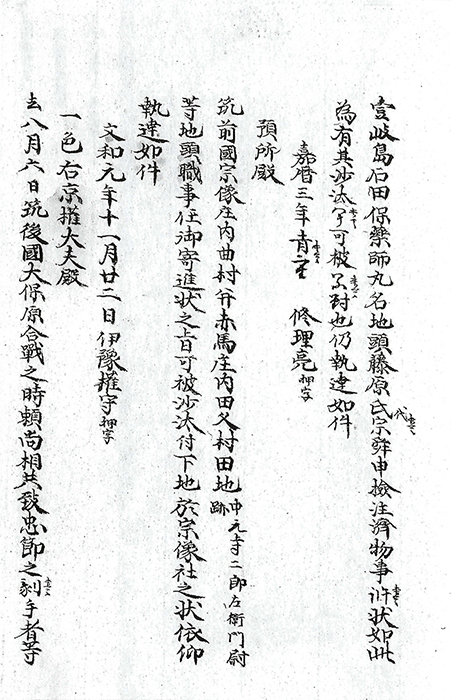 壹岐島石田保藥師丸名地頭藤原氏代宗舜申檢注濟物事訴状如此
為有其沙汰
可被
也仍執達如件
嘉暦三年
修理亮押字
預所殿
筑前國宗像庄内曲村并赤馬庄内田久村田地
二郎左衛門尉
跡
等地頭職事任御寄進状之旨可被沙汰付下地於宗像社之状依仰
執達如件
文和元年十一月廿二日伊豫權守押字
一色右京權大夫殿
去八月六日筑後國大保原合戰之時頼尚相共致忠節之刻手者等